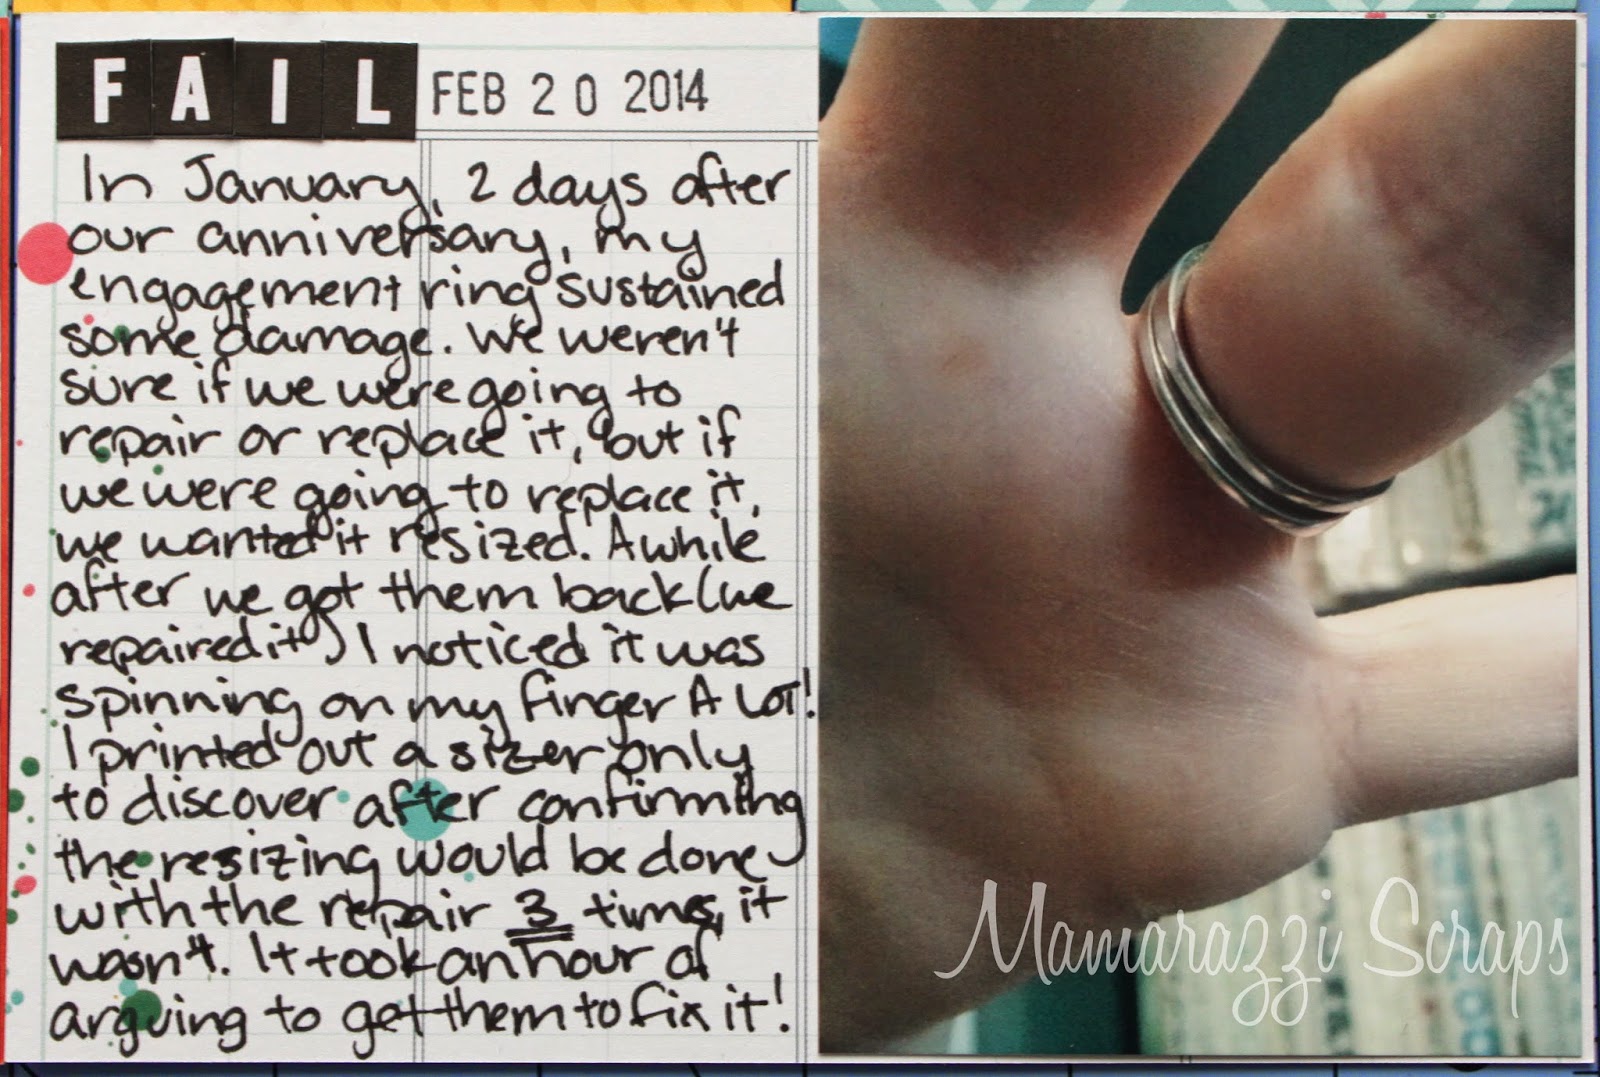 FAIL FEB 20 2014
In January, 2 days after
our anniversary, my
engagement ring sustained
some damage. We weren't
sure if we were going to
repair or replace it, but if
we were going to replace it,
we wanted it resized. Awhile
after we got them back (we
repaired it) I noticed it was
spinning on my finger A LOT!
I printed out a sizer only
to discover after confirming
the resizing would be done
with the repair 3 times, it
wasn't. It took an hour of
arguing to get them to fix it!
Mamarazzi Scraps